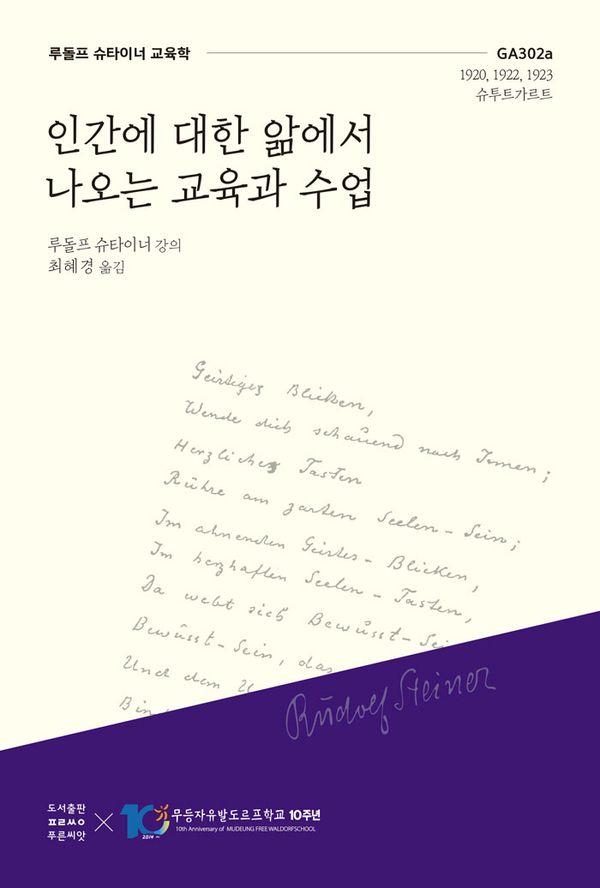 루돌프 슈타이너 교육학
GA302a
1920, 1922, 1923
슈투트가르트
인간에 대한 앎에서
나오는 교육과 수업
루돌프 슈타이너 강의
최혜경 옮김
Geistiges Blicken,
Wende dich schauend nach Innen;
Herzliches Tasten
Rühre am zarten Seelen-Sein;
Im ahnenden Geistes-Blicken,
Im herzhaften Seelen-Tasten,
Da webt sich Bewusst-Sei
Bewusst-Sein, das
Und dem
Rudolf Steiner
도서출판
ㅍㄹㅆㅇ
푸른씨앗
×
10
2014~
무등자유발도르프학교 10주년
10th Anniversary of MUDEUNG FREE WALDORFSCHOOL